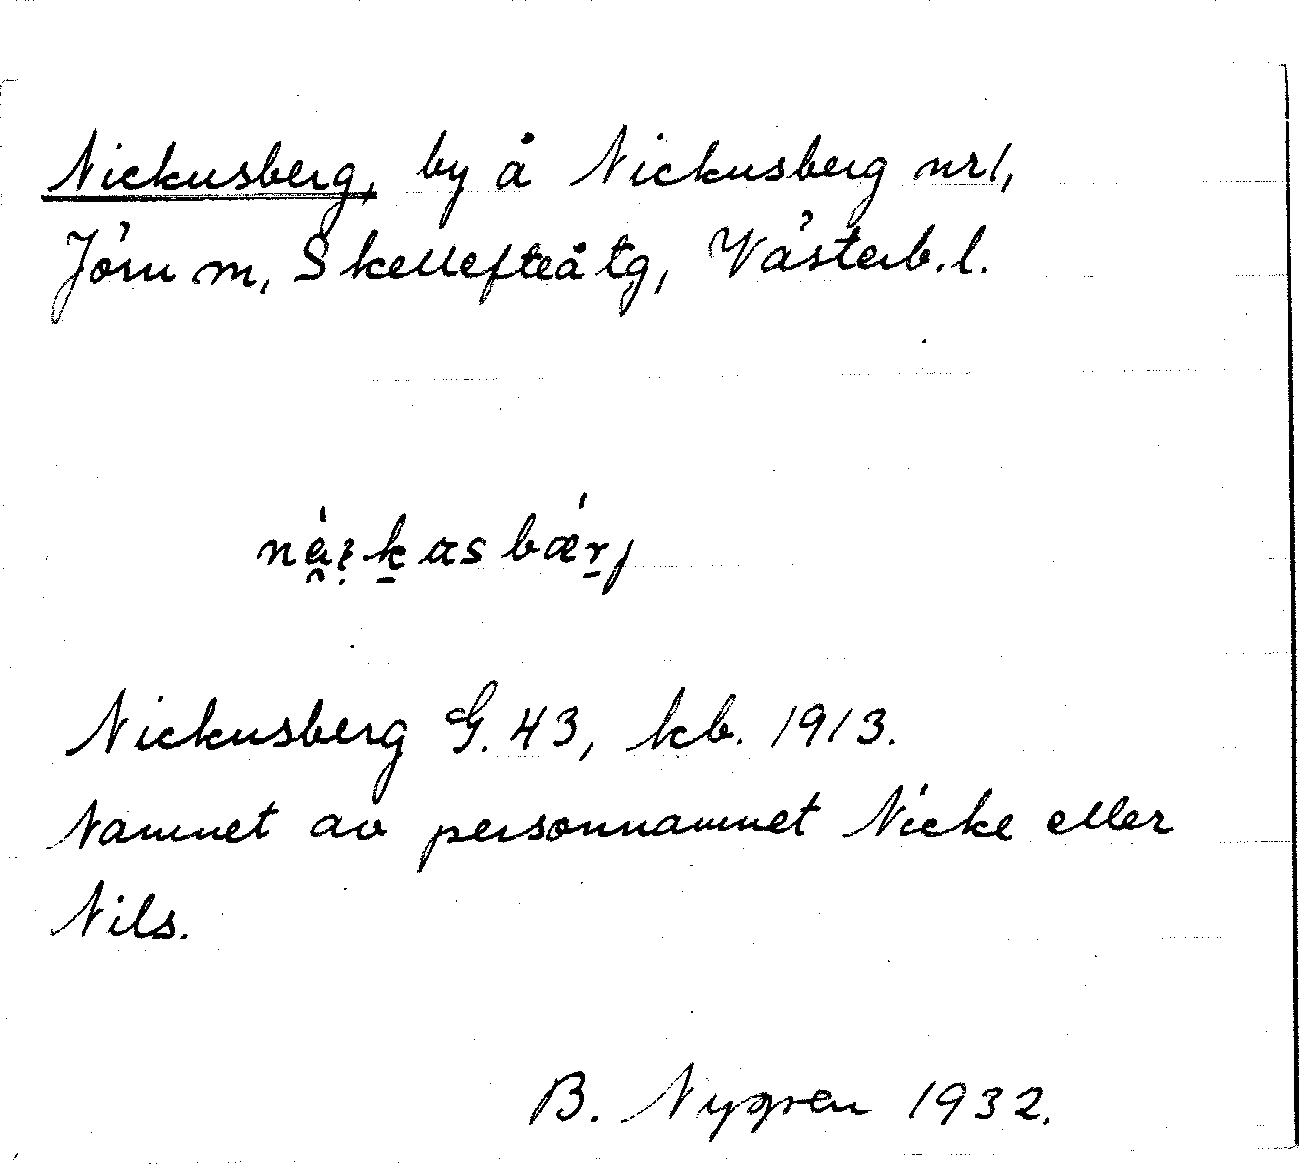 Nickusberg, by å Nickusberg nr 1,
Jörn m, Skellefteå tg, Västerb. l.
Nickusberg G. 43, kb. 1913.
Namnet av personnamnet Nicke eller
Nils.
B. Nygren 1932.